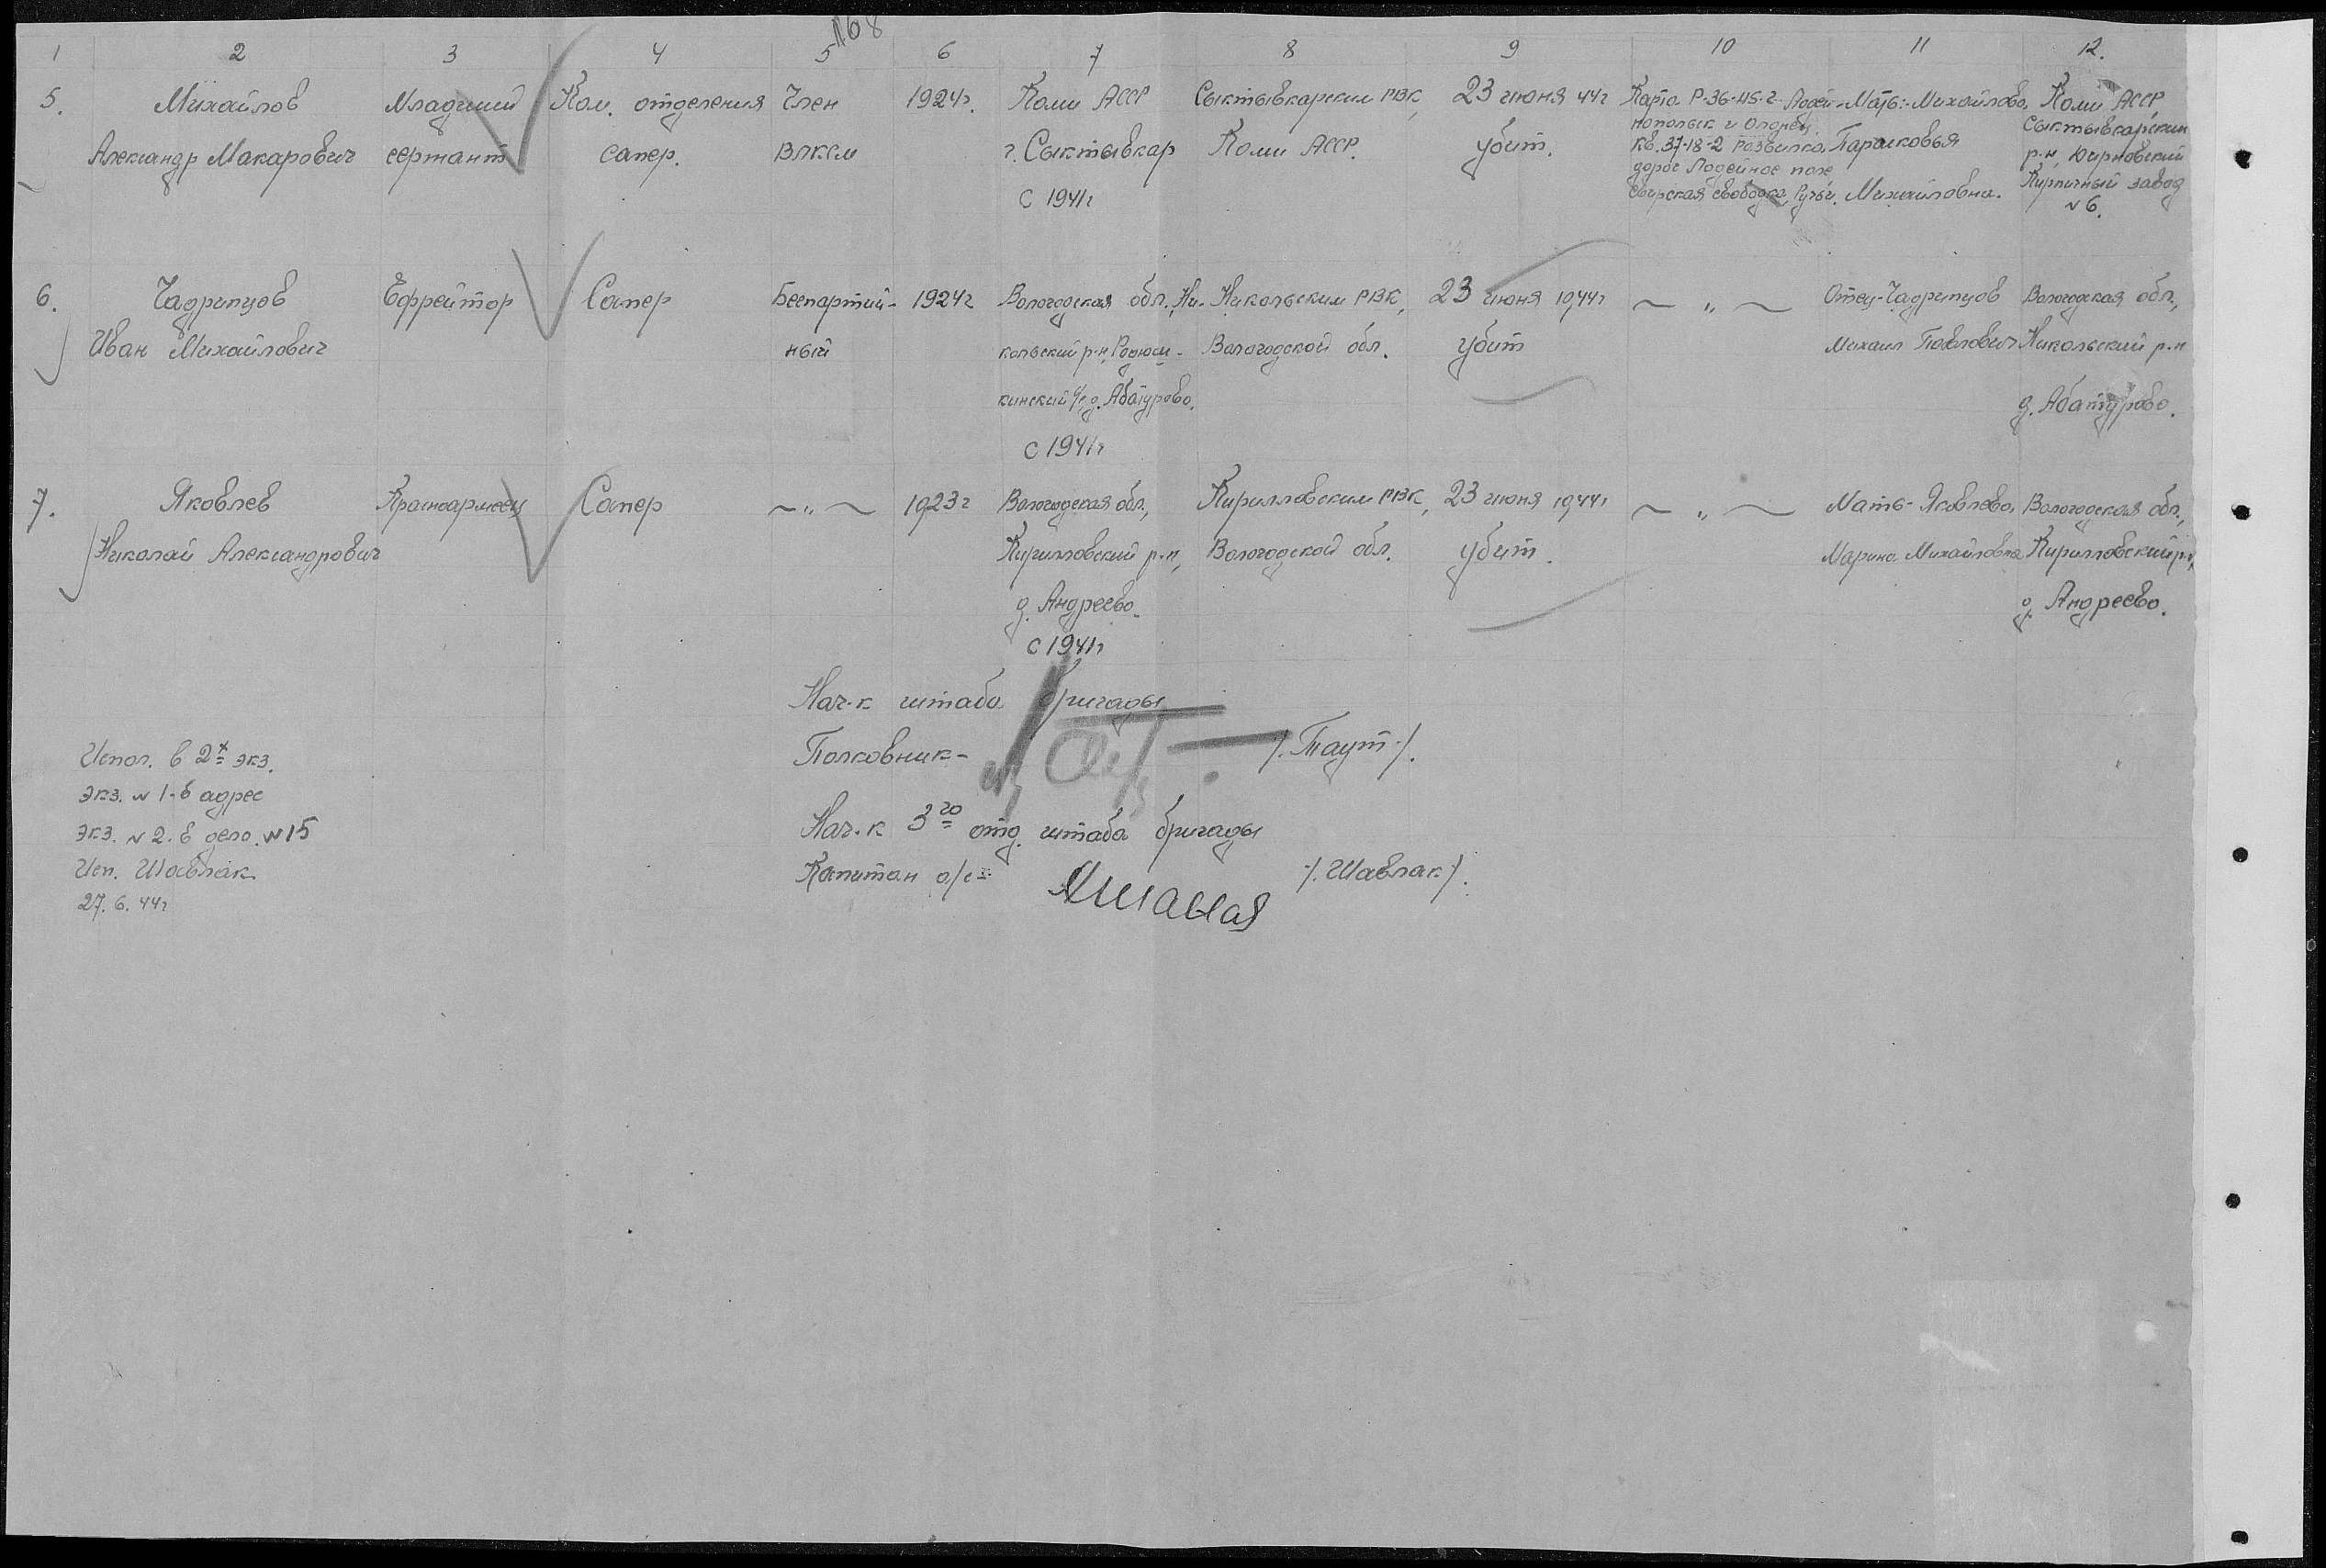 168
1 2 3 4 5 6 7 8 9 10 11 12.
5.
Михайлов
Александр Макарович
Младший
сержант
Ком. отделения
сапер.
Член
ВЛКСМ
1924г.
Коми АССР
г. Сыктывкар
с 1941г
Сыктывкарским РВК,
Коми АССР.
23 июня 44г
убит.
Карта Р-36-115-г. Лодей-
нопольск и Олонец.
кв. 37-18-2 развилка
дорог Лодейное поле
Свирская слободка, Ручьи.
Мать:-Михайлова,
Парасковья
Михайловна.
Коми АССР,
Сыктывкарский
р-н,
Кирпичный завод
№6.
6.
Чадрипцов
Иван Михайлович
Ефрейтор
Сапер
Беспартий-
ный
1924г
Вологодская обл., Ни-
кольский р-н,
кинский с/с, д. Абатурово.
с 1941г
Никольским РВК,
Вологодской обл.
23 июня 1944г
убит
— " —
Отец-Чадрипцов
Михаил Павлович
Вологодская обл.,
Никольский р-н
д. Абатурово.
7.
Яковлев
Николай Александрович
Красноармеец
Сапер
— " —
1923г
Вологодская обл.,
Кирилловский р-н,
д. Андреево.
с 1941г
Кирилловским РВК,
Вологодской обл.
23 июня 1944г
убит.
— " —
Мать-Яковлева,
Марина Михайловна
Вологодская обл.,
Кирилловский р-н,
д. Андреево.
Нач-к штаба бригады
Полковник- /.Таут./.
Нач-к 3го отд. штаба бригады
Капитан а/с- /.Шавлак/.
Испол. в 2х экз.
экз. №1-в адрес
экз. №2. в дело. №15
Исп. Шавлак
27. 6. 44г